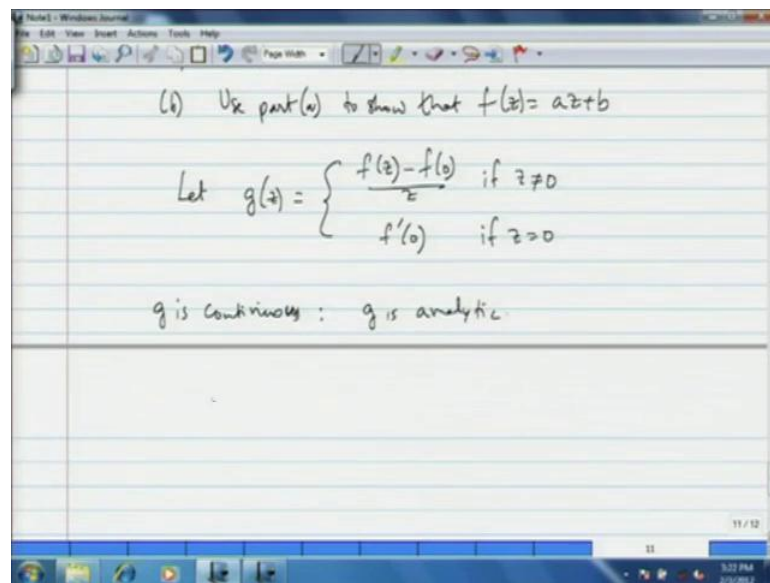 Note1 - Windows Journal
File Edit View Insert Actions Tools Help
Page Width
(b) Use part(a) to show that f(z) = az+b
Let g(z) = { f(z) - f(0) / z if z ≠ 0
f'(0) if z = 0
g is continuous : g is analytic.
11 / 12
11
3:22 PM
2/3/2012